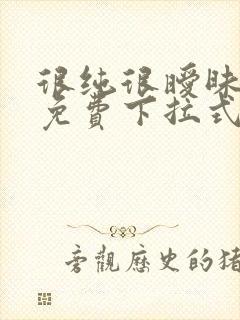 很纯很暧昧
免費下拉式
旁觀歷史的猪